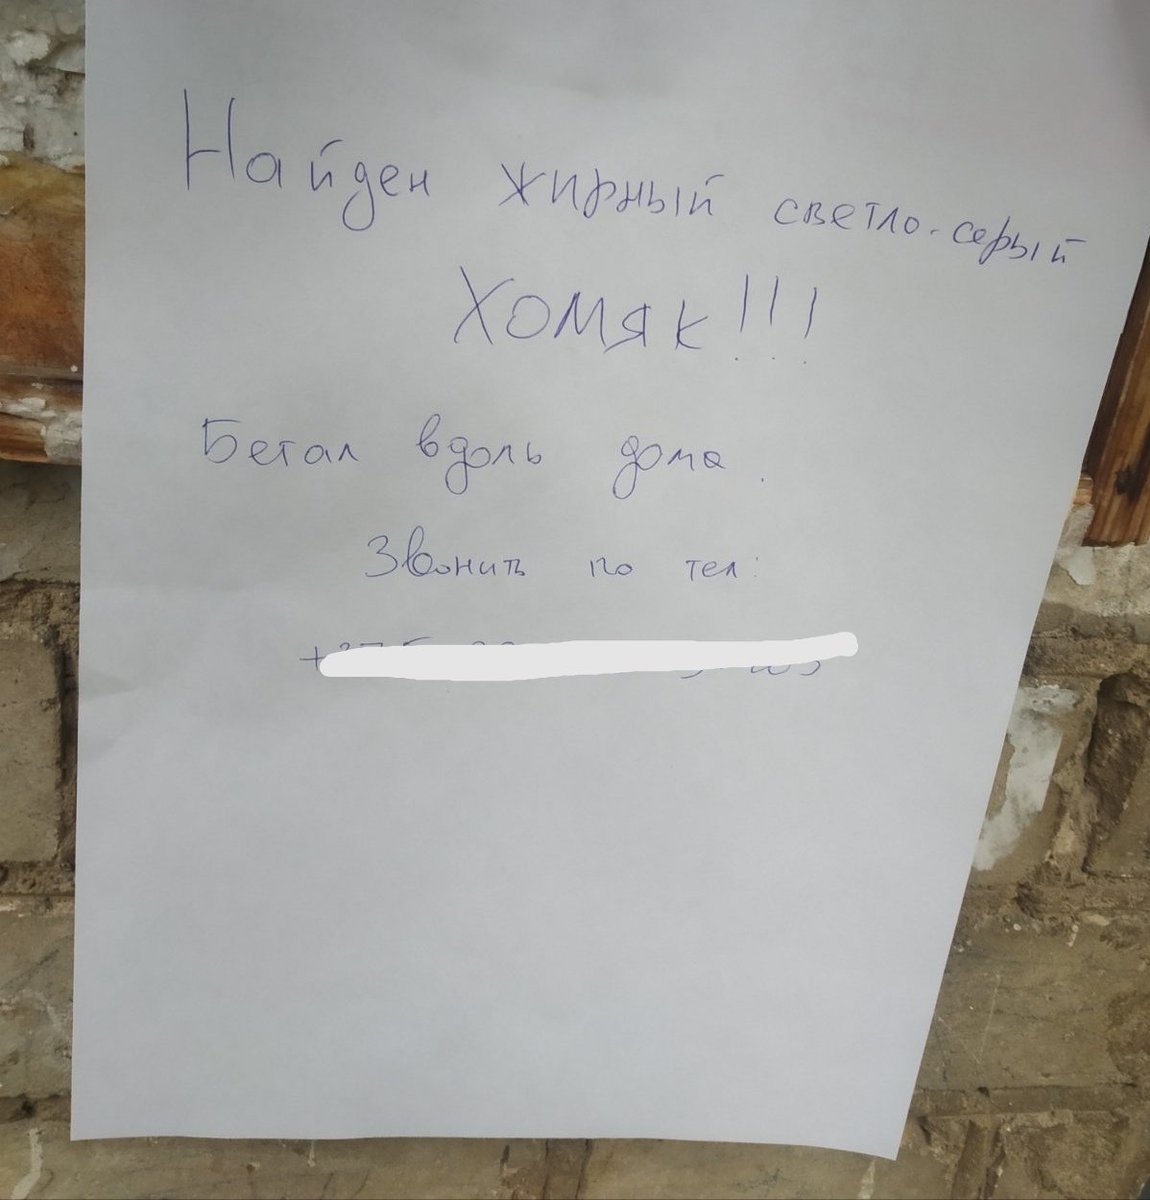 Найден жирный светло-серый
Хомяк!!!
Бегал вдоль дома.
Звонить по тел: